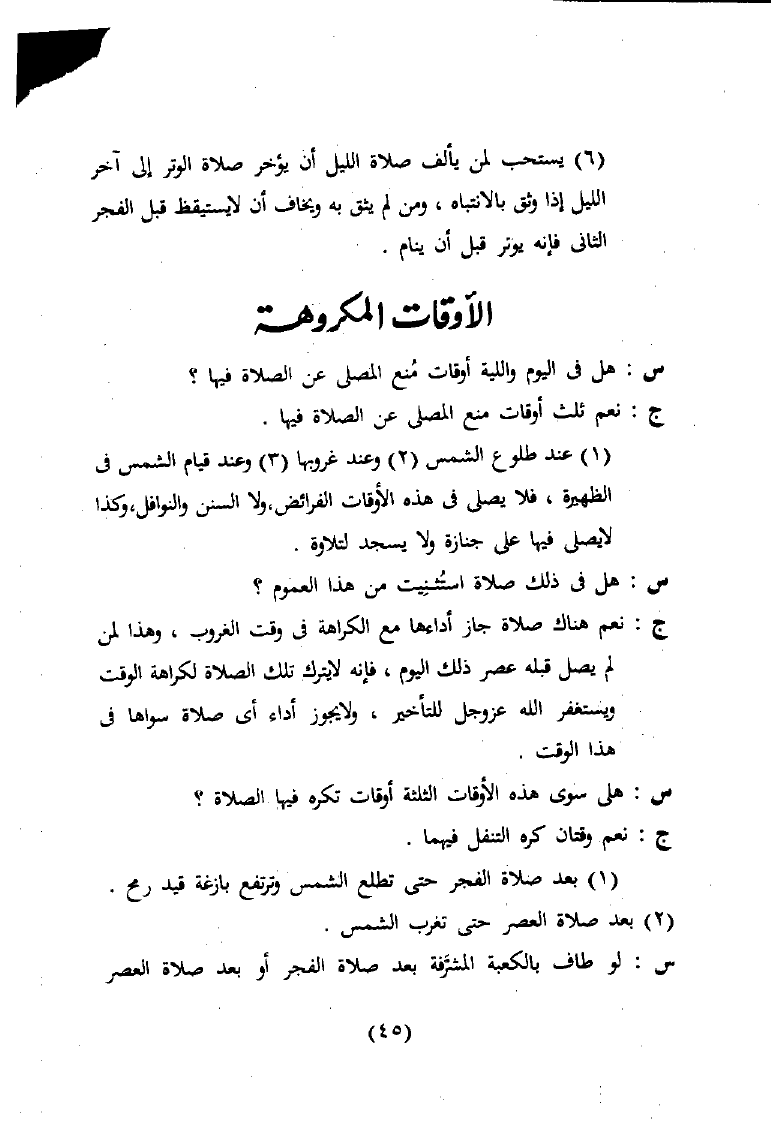 (٦) يستحب لمن يألف صلاة الليل أن يؤخر صلاة الوتر إلى آخر
الليل إذا وثق بالانتباه ، ومن لم يثق به ويخاف أن لايستيقظ قبل الفجر
الثانى فإنه يوتر قبل أن ينام .
الأوقات المكروهة
س : هل فى اليوم واللية أوقات مُنع المصلى عن الصلاة فيها ؟
ج : نعم ثلث أوقات منع المصلى عن الصلاة فيها .
(١) عند طلوع الشمس (٢) وعند غروبها (٣) وعند قيام الشمس فى
الظهيرة ، فلا يصلى فى هذه الأوقات الفرائض،ولا السنن والنوافل،وكذا
لايصلى فيها على جنازة ولا يسجد لتلاوة .
س : هل فى ذلك صلاة استُثنِيت من هذا العموم ؟
ج : نعم هناك صلاة جاز أداءها مع الكراهة فى وقت الغروب ، وهذا لمن
لم يصل قبله عصر ذلك اليوم ، فإنه لايترك تلك الصلاة لكراهة الوقت
ويستغفر الله عزوجل للتأخير ، ولايجوز أداء أى صلاة سواها فى
هذا الوقت .
س : هلى سوى هذه الأوقات الثلثة أوقات تكره فيها الصلاة ؟
ج : نعم وقتان كره التنفل فيهما .
(١) بعد صلاة الفجر حتى تطلع الشمس وترتفع بازغة قيد رمح .
(٢) بعد صلاة العصر حتى تغرب الشمس .
س : لو طاف بالكعبة المشرَّفة بعد صلاة الفجر أو بعد صلاة العصر
(٤٥)